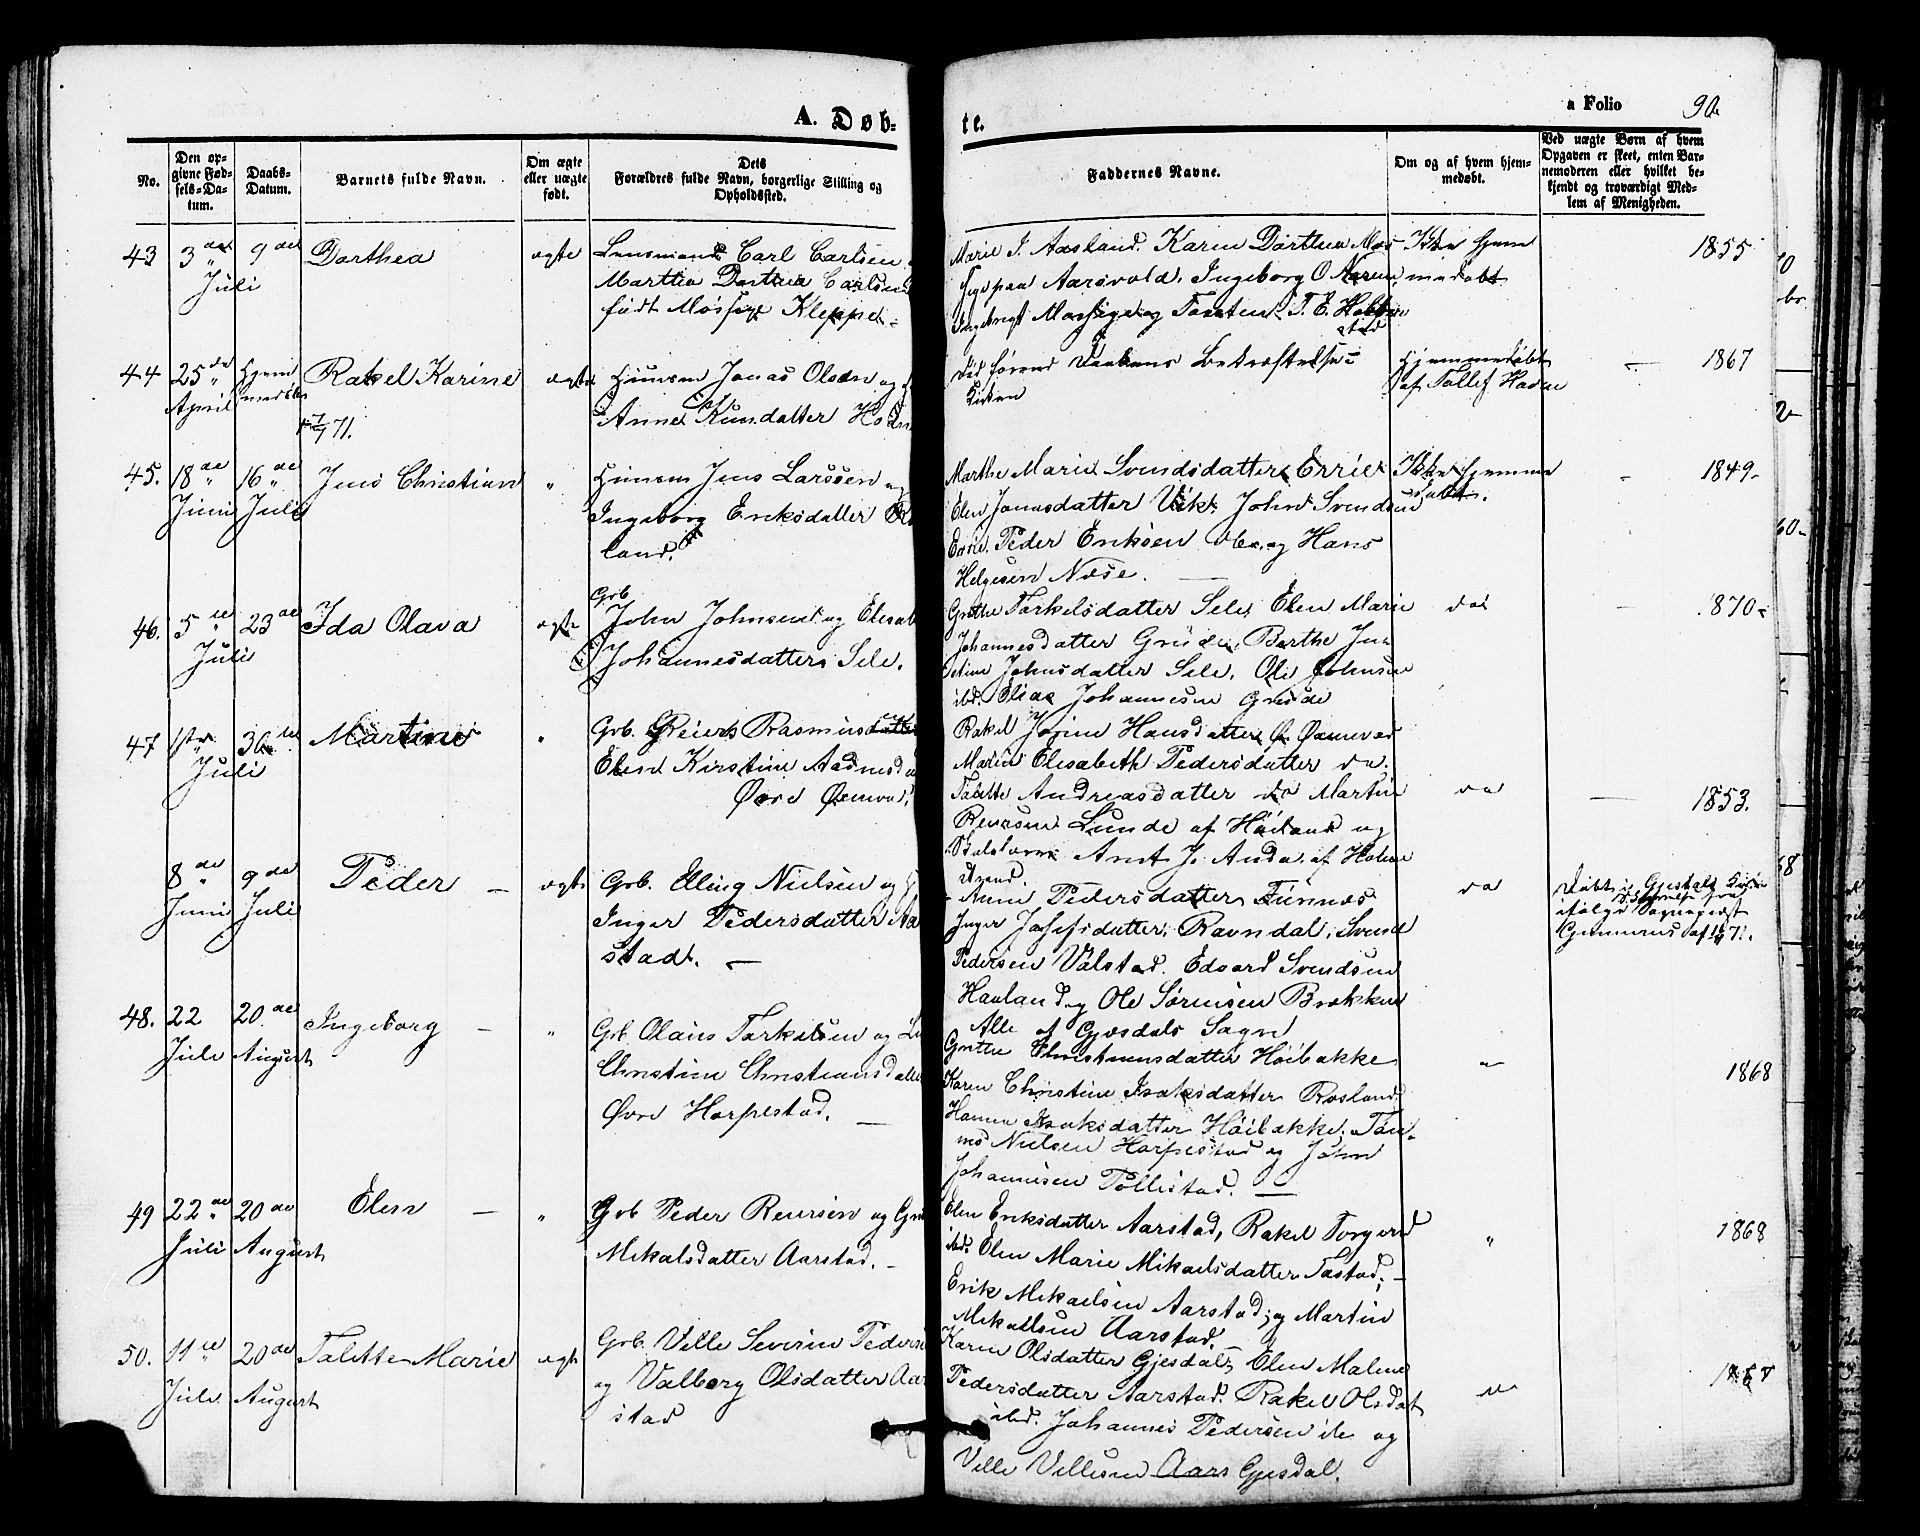 A. Døb-
te.
a Folio 90.
No.
Den op-
givne Fød-
sels-Da-
tum.
Daabs-
Datum.
Barnets fulde Navn.
Om ægte
eller uægte
født.
Dets
Forældres fulde Navn, borgerlige Stilling og
Opholdssted.
Faddernes Navne.
Om og af hvem hjem-
medøbt.
Ved uægte Børn af hvem
Opgaven er skeet, enten Bar-
nemoderen eller hvilket be-
kjendt og troværdigt Med-
lem af Menigheden.
43 3 die
Juli
9 de
Dorthea
ægte
Lensmand Carl Carlsen
Martha Dorthea Carlsen
født Mossige Kleppe
Marie J. Aasland. Karen Dorthea Mos-
sige paa Aarsvold. Ingeborg O. Næren
Ingebregt Mossige og Torsten T. E. Hobber-
stad
Ikke hjem
medøbt
1855
44 25 de
April
Hjem
medøbt
Rakel Karine
+ 7/7 71.
ægte
Huusm Jonas Olsen og
Anne Knudatter Hodn
Død førend Daabens Bekræftelse i
Kirken
Hjemmedøbt
af Tollef Hodne
— 1867
45. 18 de
Juni
16 de
Juli
Jens Christian
"
Huusm Jens Larssen og
Ingeborg Eriksdatter
land.
Marthe Marie Svendsdatter Errie
Elen Jonasdatter Vik, John Svendsen
Errie. Peder Eriksen ibd. og Hans
Helgesen Næse. —
Ikke hjemme
døbt.
- 1849-
46. 5 te
Juli
23 de
Ida Olava
ægte
Grb.
John Johnsen og Elisab
Johannesdatter Sele.
Grethe Torkelsdatter Sele, Elen Marie
Johannesdatter Grude, Berthe Ju-
stine Johnsdatter Sele, Ole Johnsen
ibd. Elias Johannesen Grude
do
— 1870-
47 1ste
Juli
30 te
Martine
"
Grb. Reiers Rasmus
Elen Kirstine Aadnesda
Øvre Øxnevad,
Rakel Jorine Hansdatter Ø. Øxnevad
Maren Elisabeth Pedersdatter do.
Talette Andreasdatter do Martin
Reiersen Lunde af Høiland og
Arnt J. Anda af Holme
Strand.
do
— 1853.
8 de
Juni
9 de
Juli
Peder —
ægte
Grb. Elling Nielsen og
Inger Pedersdatter Aa
stad. —
Anne Pedersdatter Tunnæs
Inger Josefsdatter, Ravndal, Svend
Pedersen Valstad. Edvard Svendsen
Havland og Ole Sørensen Brekken
Alle af Gjesdals Sogn
do
Døbt i Gjesdals Kirke
ifølge Sognepræst
Gunnerus af
48. 22
Juli
20 de
August
Ingeborg —
"
Grb. Olaus Torkelsen og
Christine Christiansdatter
Øvre Horpestad. —
Grethe Christensdatter Høibakke
Karen Christine Isaksdatter Rosland
Hanne Isaksdatter Høibakke, Tøn-
nes Nielsen Horpestad og John
Johannesen Tollestad. —
"
1868
49 22 de
Juli
20 de
August
Elen —
"
Grb Peder Reiersen og Gre
Mikalsdatter Aarstad. —
Elen Eriksdatter Aarstad, Rakel Torgersd
ibd. Elen Marie Mikaelsdatter Tostad, —
Erik Mikaelsen Aarstad, og Martin
Mikaelsen Aarstad.
"
1868
50. 11 te
Juli
20 de
August
Talette Marie
ægte
Grb. Ville Severin Peders
og Valborg Olsdatter Aar
stad
Karen Olsdatter Gjesdal, Elen Malene
Pedersdatter Aarstad. Rakel Olsdat
ibd. Johannes Pedersen ibd og
Ville Villesen Gjesdal.
do